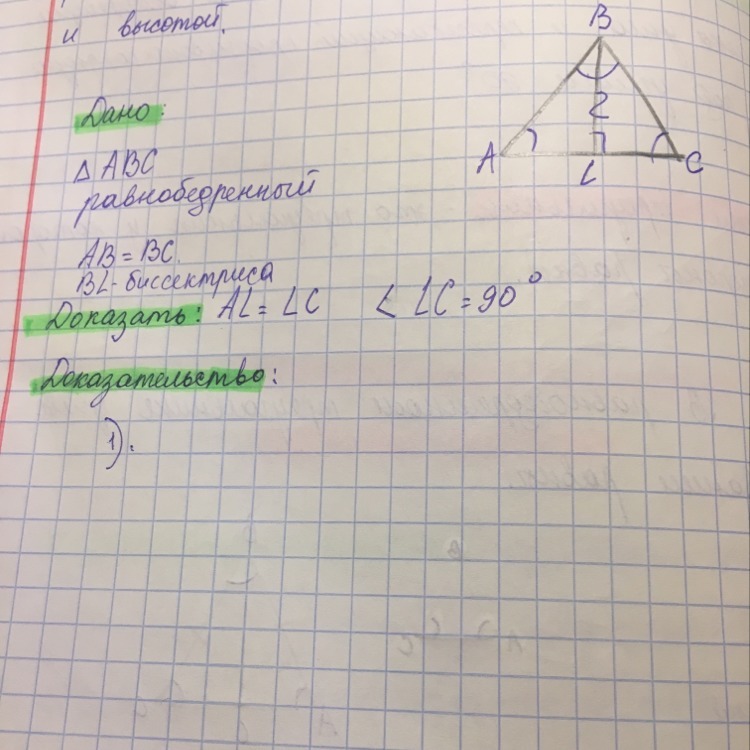 и высотой.
B
Дано:
2
A
L
C
Δ ABC
равнобедренный
AB = BC.
BL - биссектриса
Доказать: AL = LC < LC = 90°
Доказательство:
1).